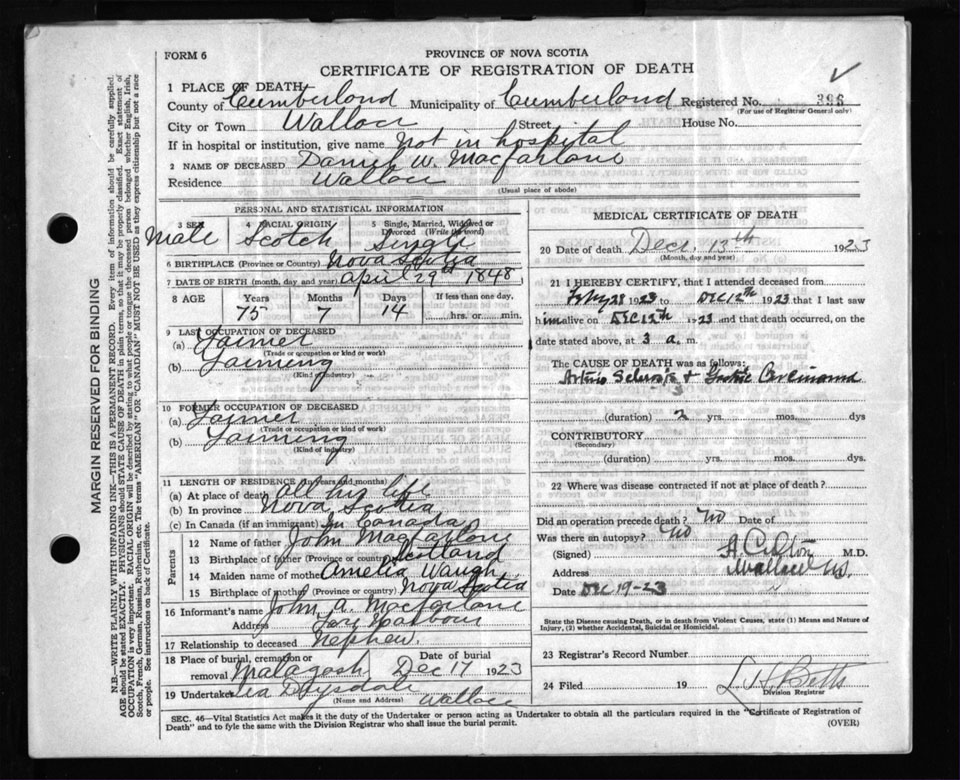 FORM 6
PROVINCE OF NOVA SCOTIA
CERTIFICATE OF REGISTRATION OF DEATH
1 PLACE OF DEATH
County of Cumberland Municipality of Cumberland Registered No. 396
(For use of Registrar General only)
City or Town Wallace Street House No.
If in hospital or institution, give name Not in hospital
2 NAME OF DECEASED Daniel W. Macfarlane
Residence Wallace
(Usual place of abode)
PERSONAL AND STATISTICAL INFORMATION
3 SEX 4 RACIAL ORIGIN 5 Single, Married, Widowed or Divorced (Write the word)
Male Scotch Single
6 BIRTHPLACE (Province or Country) Nova Scotia
7 DATE OF BIRTH (month, day and year) April 29th 1848
8 AGE Years Months Days If less than one day,
75 7 14 hrs. or min.
9 LAST OCCUPATION OF DECEASED
(a) Farmer
(Trade or occupation or kind or work)
(b) Farming
(Kind of industry)
10 FORMER OCCUPATION OF DECEASED
(a) Farmer
(Trade or occupation or kind or work)
(b) Farming
(Kind of industry)
11 LENGTH OF RESIDENCE (in years and months)
(a) At place of death All his life
(b) In province Nova Scotia
(c) In Canada (if an immigrant) In Canada
Parents
12 Name of father John Macfarlane
13 Birthplace of father (Province or country) Scotland
14 Maiden name of mother Amelia Waugh
15 Birthplace of mother (Province or country) Nova Scotia
16 Informant's name John A. Macfarlane
Address Fox Harbour
17 Relationship to deceased Nephew.
18 Place of burial, cremation or removal Malagash Date of burial Dec 17 1923
19 Undertaker Drysdale
(Name and Address) Wallace
MEDICAL CERTIFICATE OF DEATH
20 Date of death Decr. 13th 1923
(Month, day and year)
21 I HEREBY CERTIFY, that I attended deceased from
Feby 28 1923 to Dec 12th 1923 that I last saw
him alive on Dec 12th 1923 and that death occurred, on
date stated above, at 3 a. m.
The CAUSE OF DEATH was as follows:
Arterio Sclerosis + Gastric Carcinoma
(duration) 2 yrs. mos. dys
CONTRIBUTORY
(Secondary)
(duration) yrs. mos. dys.
22 Where was disease contracted if not at place of death?
Did an operation precede death? No Date of
Was there an autopsy? No
(Signed) M.D.
Address Wallace N.S.
Date Dec 19-23
State the Disease causing Death, or in death from Violent Causes, state (1) Means and Nature of Injury, (2) whether Accidental, Suicidal or Homicidal.
23 Registrar's Record Number
24 Filed 19 L. H. Betts
Division Registrar
SEC. 46—Vital Statistics Act makes it the duty of the Undertaker or person acting as Undertaker to obtain all the particulars required in the "Certificate of Registration of
Death" and to fyle the same with the Division Registrar who shall issue the burial permit. (OVER)
MARGIN RESERVED FOR BINDING
N.B.—WRITE PLAINLY WITH UNFADING INK—THIS IS A PERMANENT RECORD. Every item of information should be carefully supplied.
AGE should be stated EXACTLY. PHYSICIANS should STATE CAUSE OF DEATH in plain terms, so that it may be properly classified. Exact statement of
OCCUPATION is very important. RACIAL ORIGIN will be described by stating to what people or tongue the deceased person belonged whether English, Irish,
Scotch, French, German, Russian, Ruthenian, etc. The terms "AMERICAN" OR "CANADIAN" MUST NOT BE USED as they express citizenship but not a race
or people. See instructions on back of Certificate.